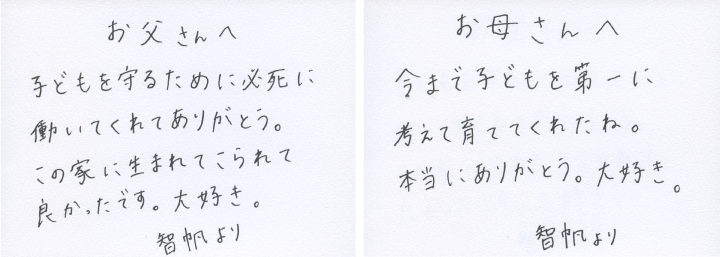 お父さんへ
子どもを守るために必死に
働いてくれてありがとう。
この家に生まれてこられて
良かったです。大好き。
智帆より
お母さんへ
今まで子どもを第一に
考えて育ててくれたね。
本当にありがとう。大好き。
智帆より